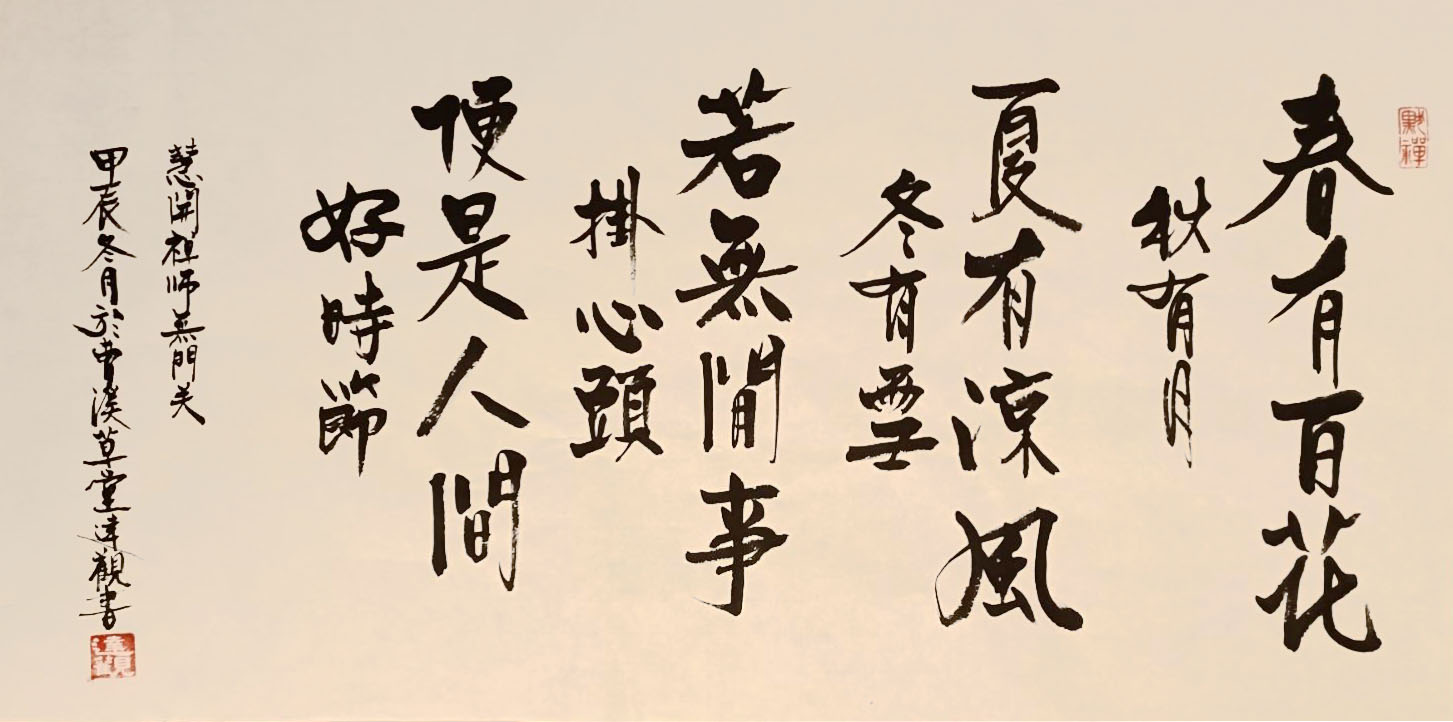 春有百花
秋有月
夏有涼風
冬有雪
若無閒事
掛心頭
便是人間
好時節
慧開祖師無門关
甲辰冬月於曹溪草堂達觀書
達觀